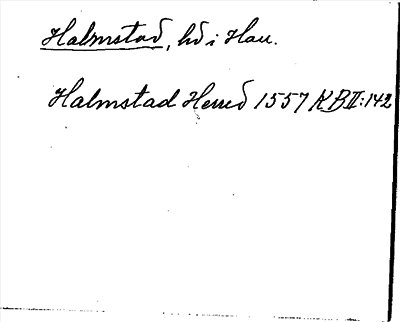 Halmstad, hd i Hall.
Halmstad Herred 1557 KB II:142